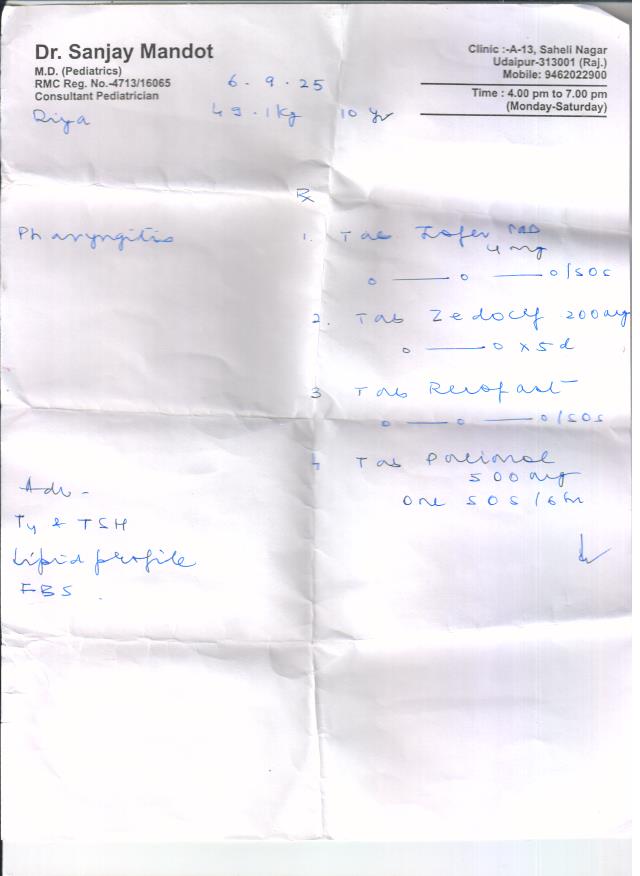 Dr. Sanjay Mandot
M.D. (Pediatrics)
RMC Reg. No.-4713/16065
Consultant Pediatrician
Clinic :-A-13, Saheli Nagar
Udaipur-313001 (Raj.)
Mobile: 9462022900
Time : 4.00 pm to 7.00 pm
(Monday-Saturday)
6 . 9 . 25
Riya 49.1kg 10 yr
Rx
Pharyngitis
1. Tab
4 mg
o — o — o/SOS
2. Tab Zedocef 200mg
o — o x 5d
3 Tab Rerofast
o — o — o/SOS
4 Tab Pacimol
500mg
one SOS/6hr
Adv -
T4 & TSH
Lipid profile
FBS